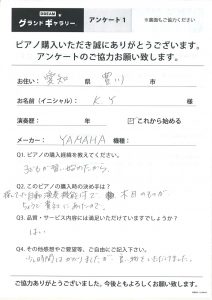 グランドギャラリー アンケート1 ※裏面もご協力ください
ピアノ購入いただき誠にありがとうございます。
アンケートのご協力お願い致します。
お住い: 愛知 県 豊川 市
お名前(イニシャル): K Y 様
演奏歴: 年 ☑これから始める
メーカー: YAMAHA 機種:
Q1. ピアノの購入経緯を教えてください。
子どもが習い始めたから。
Q2. このピアノの購入時の決め手は?
探していた自動演奏機能付で 木目のものが
ちょうど展示にあったので。
Q3. 品質・サービス内容には満足いただけていますでしょうか?
はい
Q4. その他感想やご要望等、ご自由にご記入下さい。
少し時間はかかりましたが、良い物をいただけました。
ご協力ありがとうございました。今後ともよろしくお願い致します。